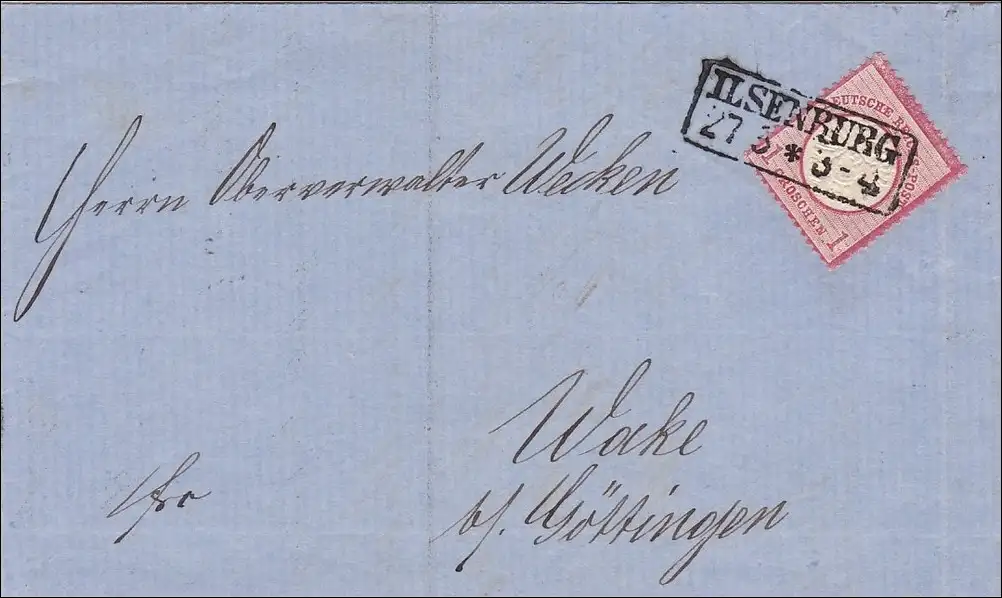 ILSENBURG
27 3 * 3 - 4
DEUTSCHE R POST
1 GROSCHEN 1
Herrn Oberverwalter Wecken
Wake
b/. Göttingen